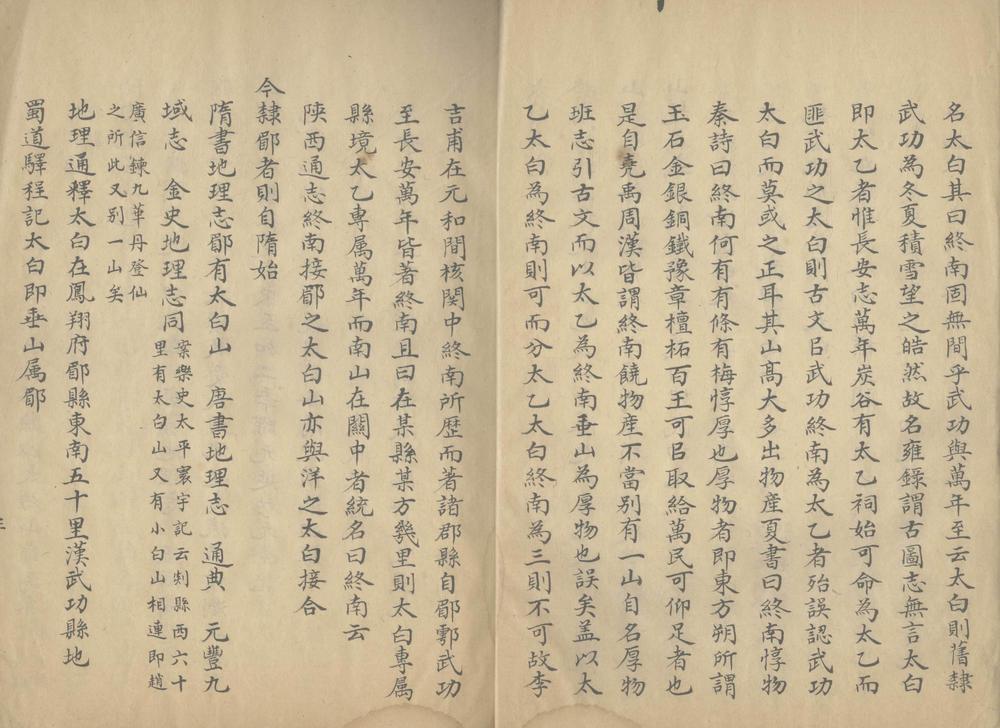 名太白其曰終南固無間乎武功與萬年至云太白則舊隸
武功為冬夏積雪望之皓然故名雍錄謂古圖志無言太白
即太乙者惟長安志萬年炭谷有太乙祠始可命為太乙而
匪武功之太白則古文㠯武功終南為太乙者殆誤認武功
太白而莫或之正耳其山高大多出物產夏書曰終南惇物
秦詩曰終南何有有條有梅惇厚也厚物者即東方朔所謂
玉石金銀銅鐵豫章檀柘百王可㠯取給萬民可仰足者也
是自堯禹周漢皆謂終南饒物產不當別有一山自名厚物
班志引古文而以太乙為終南垂山為厚物也誤矣盖以太
乙太白為終南則可而分太乙太白終南為三則不可故李
吉甫在元和間核関中終南所歷而著諸郡縣自郿鄠武功
至長安萬年皆著終南且曰在某縣某方幾里則太白專属
縣境太乙專属萬年而南山在關中者統名曰終南云
陝西通志終南接郿之太白山亦與洋之太白接合
今隸郿者則自隋始
隋書地理志郿有太白山 唐書地理志 通典 元豐九
域志 金史地理志同 案樂史太平寰宇記云剡縣西六十
里有太白山又有小白山相連即趙
廣信鍊九華丹登仙
之所此又别一山矣
地理通釋太白在鳳翔府郿縣東南五十里漢武功縣地
蜀道驛程記太白即垂山属郿
三